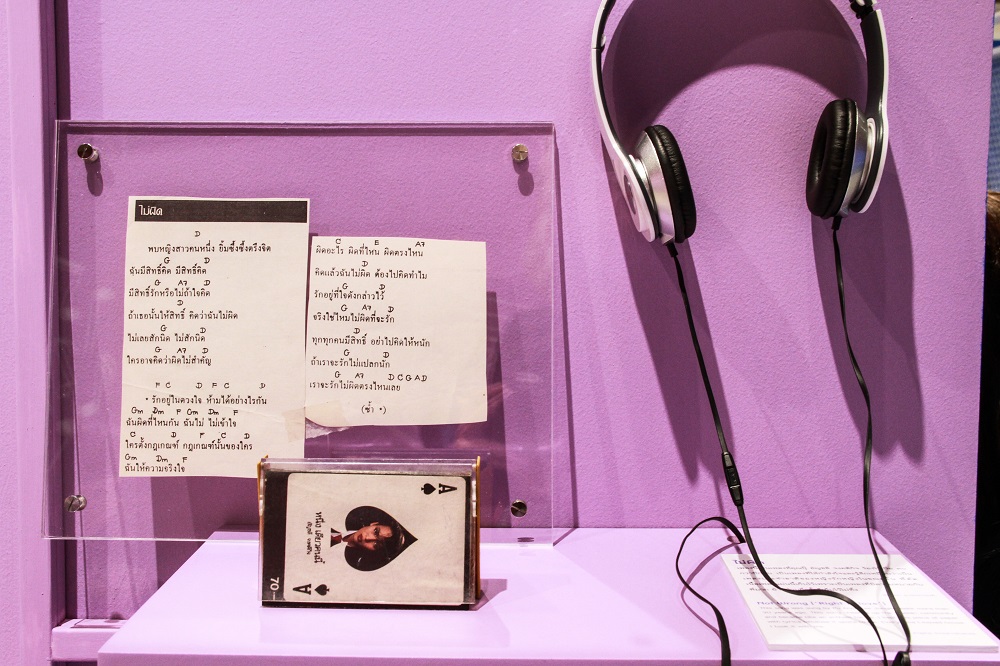 ไม่ผิด
D
พบหญิงสาวคนหนึ่ง ยิ้มซึ้งซึ้งตรึงจิต
G D
ฉันมีสิทธิ์คิด มีสิทธิ์คิด
G A7 D
มีสิทธิ์รักหรือไม่ถ้าใจคิด
D
ถ้าเธอนั้นให้สิทธิ์ คิดว่าฉันไม่ผิด
G D
ไม่เลยสักนิด ไม่สักนิด
G A7 D
ใครอาจคิดว่าผิดไม่สำคัญ
F C D F C D
* รักอยู่ในดวงใจ ห้ามได้อย่างไรกัน
Gm Dm F Gm Dm F
ฉันผิดที่ไหนกัน ฉันไม่ ไม่เข้าใจ
C D F C D
ใครตั้งกฎเกณฑ์ กฎเกณฑ์นั้นของใคร
Gm Dm F
ฉันให้ความจริงใจ
C E A7
ผิดอะไร ผิดที่ไหน ผิดตรงไหน
D
คิดแล้วฉันไม่ผิด ต้องไปคิดทำไม
G D
รักอยู่ที่ใจดังกล่าวไว้
G A7 D
จริงใช่ไหมไม่ผิดที่จะรัก
D
ทุกทุกคนมีสิทธิ์ อย่าไปคิดให้หนัก
G D
ถ้าเราจะรักไม่แปลกนัก
G A7 D C G A D
เราจะรักไม่ผิดตรงไหนเลย
(ซ้ำ *)
A
A
70.-
ไม่ผิด